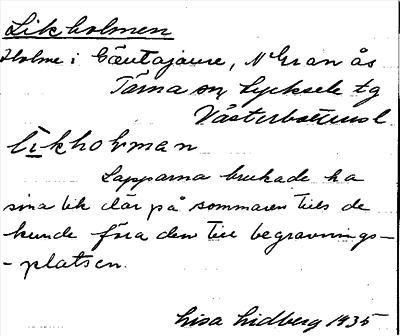 Likholmen
Holme i Gäutajaure, N Gran ås
Tärna sn, Lycksele tg
Västerbottens l
līkholman
Lapparna brukade ha
sina lik där på sommaren tills de
kunde föra dem till begravnings-
-platsen.
Lisa Lidberg 1935